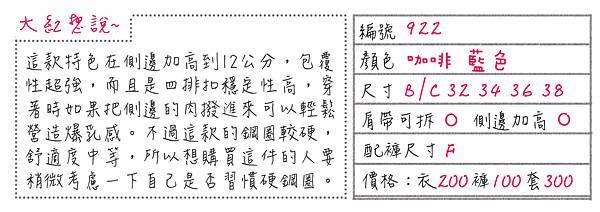 大紅想說~
這款特色在側邊加高到12公分，包覆
性超強，而且是四排扣穩定性高，穿
著時如果把側邊的肉撥進來可以輕鬆
營造爆乳感。不過這款的鋼圈較硬，
舒適度中等，所以想購買這件的人要
稍微考慮一下自己是否習慣硬鋼圈。
編號 922
顏色 咖啡 藍色
尺寸 B/C 32 34 36 38
肩帶可拆 O 側邊加高 O
配褲尺寸 F
價格：衣200褲100套300